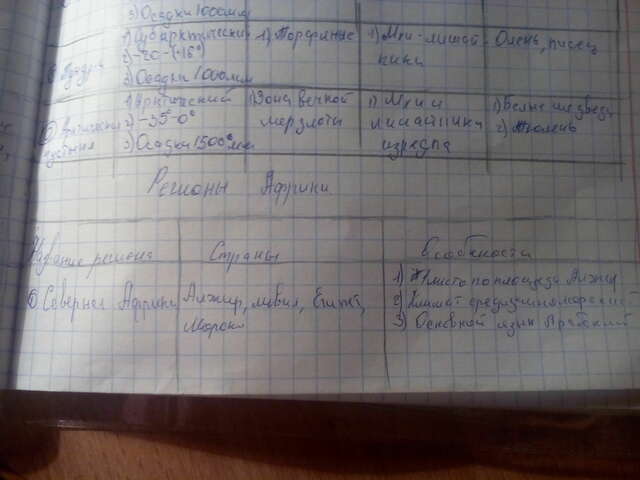 3) Осадки 1000мм
1) Субарктический 1) Торфяные 1) Мхи-лишай- Олень, писец
2) -20-(+16°) ники
6 Тундра 3) Осадки 1000мм
1) Арктический 1) Зона вечной 1) Мхи и 1) Белые медведи
Арктическая 2) -35°-0° мерзлоты лишайники 2) Тюлень
пустыня 3) Осадки 500мм изредка
Регионы Африки
Название региона Страны Особенности
Северная Африка Алжир, ливия, Египет, 1) 1 место по площади Алжир
Марокко 2) Климат средиземноморский
3) Основной язык Арабский